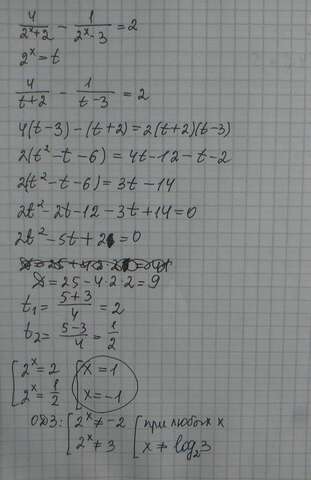 4/(2^x+2) - 1/(2^x-3) = 2
2^x = t
4/(t+2) - 1/(t-3) = 2
4(t-3) - (t+2) = 2(t+2)(t-3)
2(t^2-t-6) = 4t-12-t-2
2(t^2-t-6) = 3t-14
2t^2-2t-12-3t+14=0
2t^2-5t+2=0
D=25-4·2·2=9
t1 = (5+3)/4 = 2
t2 = (5-3)/4 = 1/2
[2^x=2 [x=1
[2^x=1/2 [x=-1
ОДЗ: [2^x≠-2 [при любых x
[2^x≠3 [x≠log_2 3